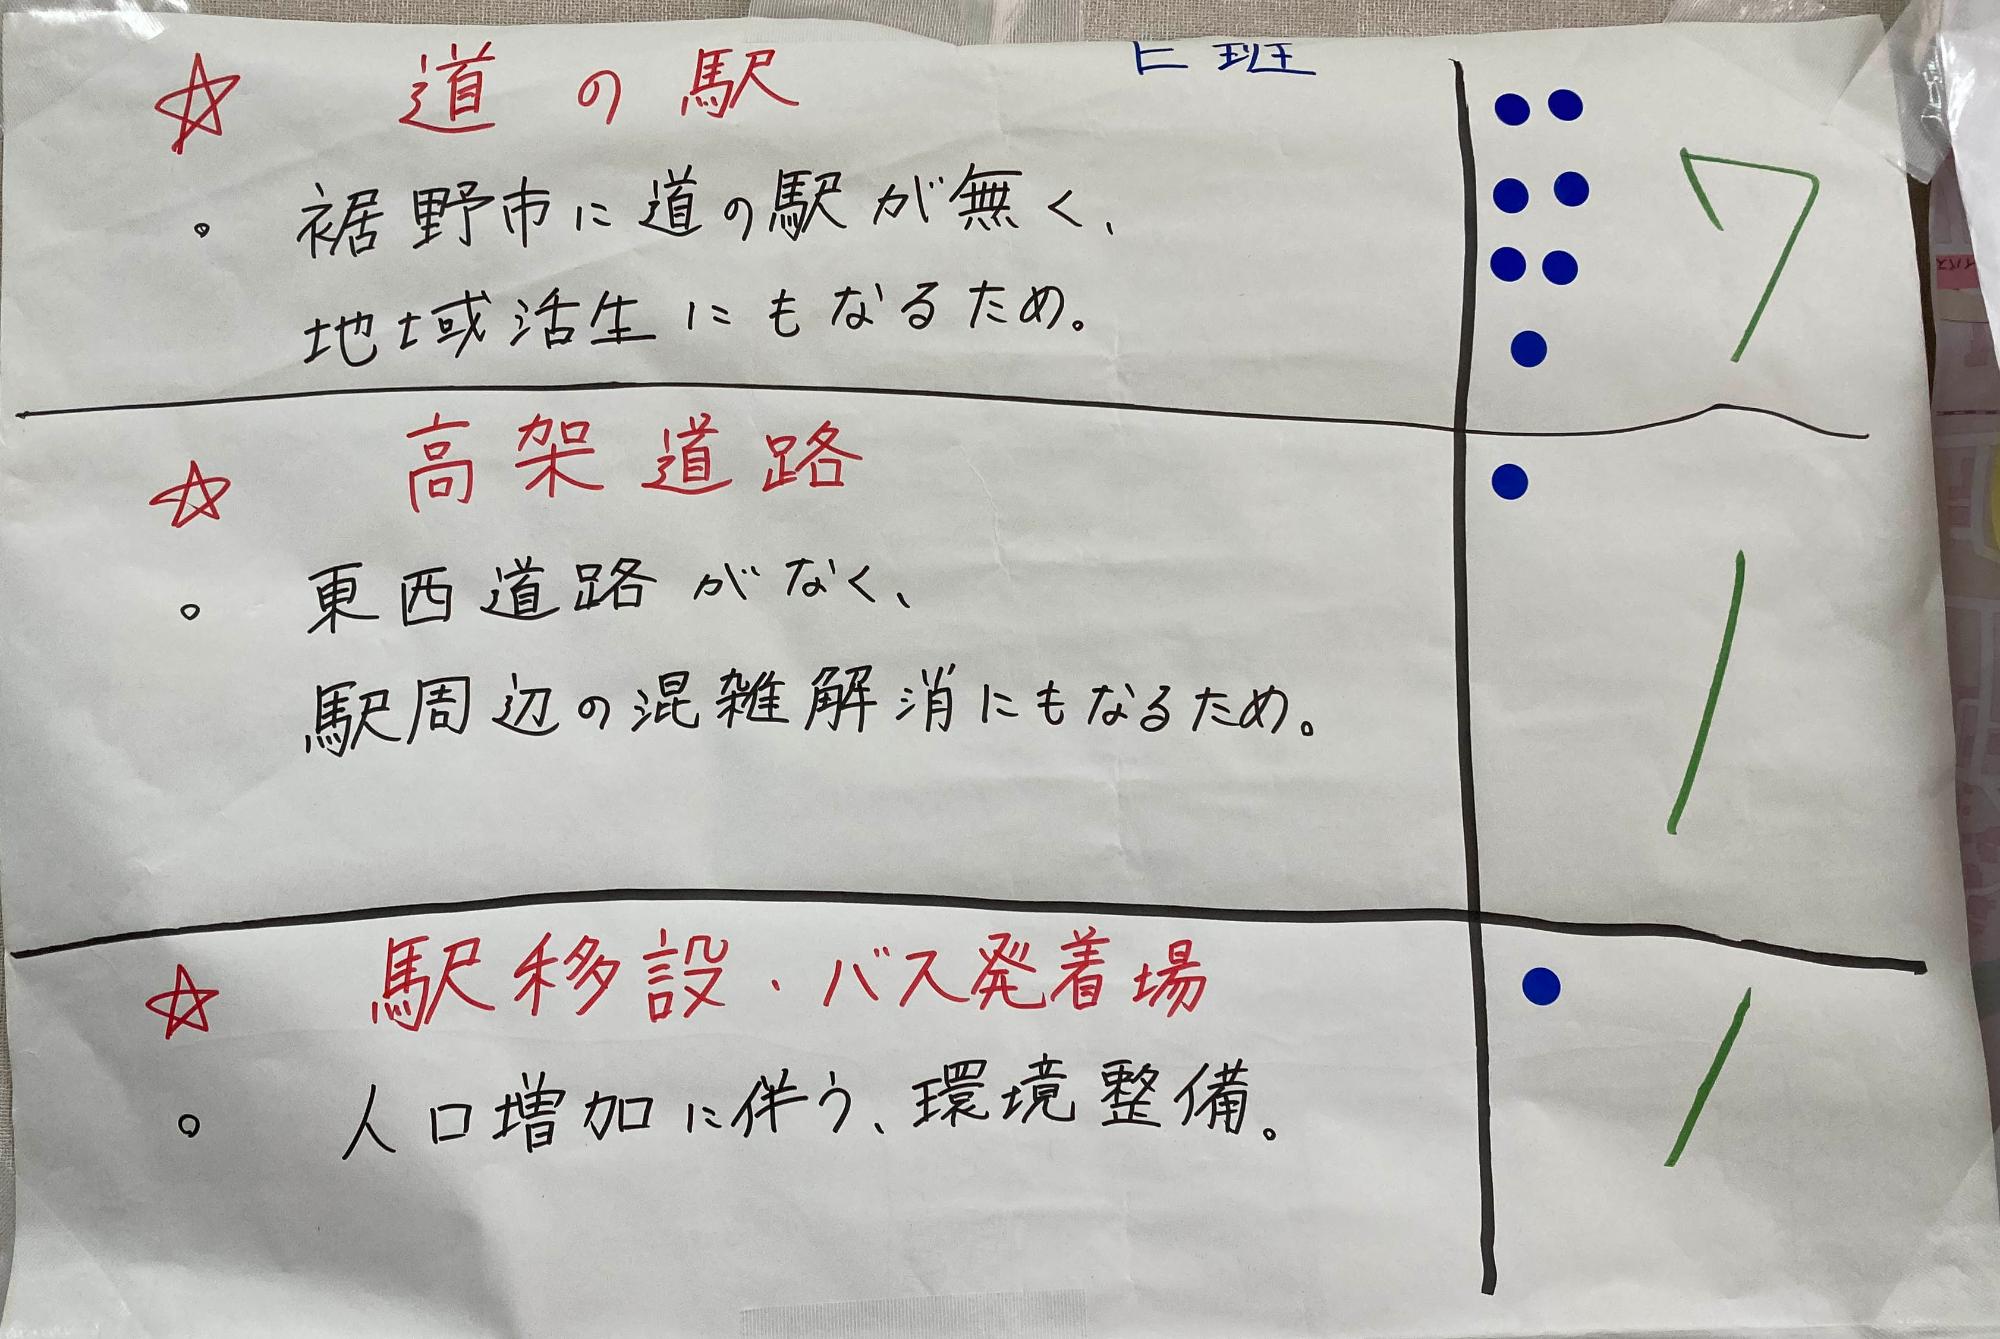 E班
☆ 道の駅
。裾野市に道の駅が無く、
地域活生にもなるため。
7
☆ 高架道路
。東西道路がなく、
駅周辺の混雑解消にもなるため。
1
☆ 駅移設・バス発着場
。人口増加に伴う、環境整備。
1